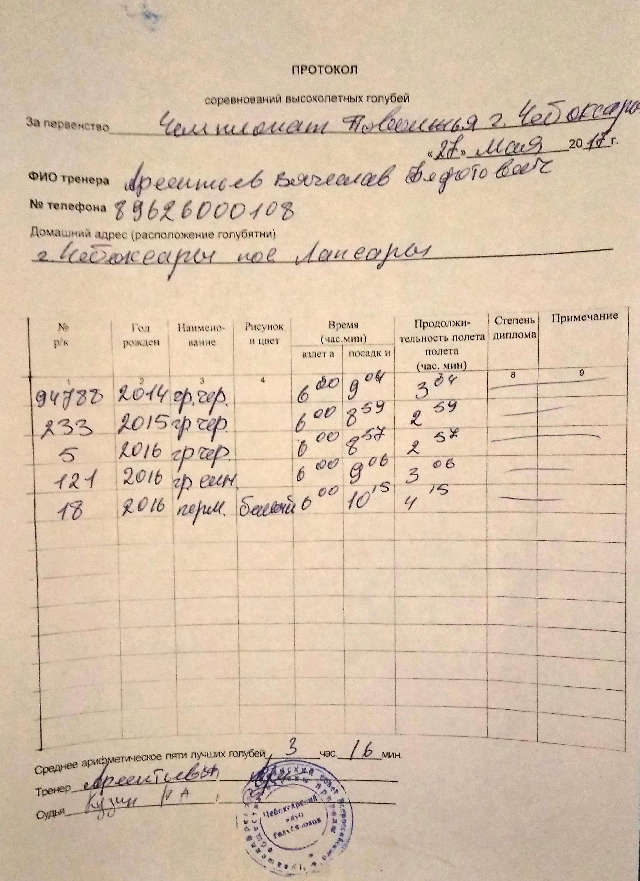 ПРОТОКОЛ
соревнований высоколетных голубей
За первенство Чемпионат Поволжья г. Чебоксары
«27» мая 2017 г.
ФИО тренера Арсентьев Вячеслав Федотович
№ телефона 89626000108
Домашний адрес (расположение голубятни)
г. Чебоксары пос Лапсары
№ р/к Год рожден Наимено-вание Рисунок и цвет Время (час.мин) взлет а посадк и Продолжи-тельность полета полета (час. мин) Степень диплома Примечание
1 2 3 4 8 9
94788 2014 гр.чер. 6 00 9 04 3 04
233 2015 гр чер. 6 00 8 59 2 59
5 2016 гр чер. 6 00 8 57 2 57
121 2016 гр син. 6 00 9 06 3 06
18 2016 перм. белый 6 00 10 15 4 15
Среднее арифметическое пяти лучших голубей 3 час. 16 мин
Тренер Арсентьев
Судьи Кузин
Чебоксарский клуб